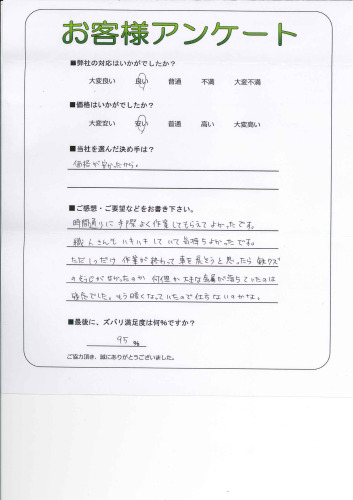 お客様アンケート
■弊社の対応はいかがでしたか？
大変良い　良い　普通　不満　大変不満
■価格はいかがでしたか？
大変安い　安い　普通　高い　大変高い
■当社を選んだ決め手は？
価格が安かったから。
■ご感想・ご要望などをお書き下さい。
時間通りに手際よく作業してもらえてよかったです。
職人さんもハキハキしていて気持ちよかったです。
ただ1つだけ作業が終わって車を戻そうと思ったら鉄クズ
のそうじがなかったのか何個か大きな金属が落ちていたのは
残念でした。もう暗くなっていたので仕方ないのかな。
■最後に、ズバリ満足度は何％ですか？
95 %
ご協力頂き、誠にありがとうございました。